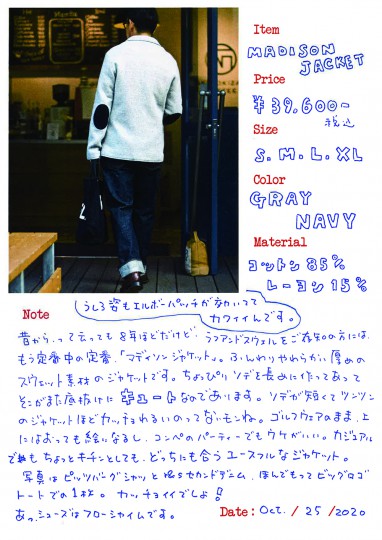 Item
MADISON
JACKET
Price
¥39,600-
税込
Size
S. M. L. XL
Color
GRAY
NAVY
Material
コットン 85%
レーヨン 15%
Note
うしろ姿もエルボーパッチが効いてて
カワイイんです。
昔から、って云っても8年ほどだけど、ラアンドスウェルをご存知の方には、
もう定番中の定番、「マディソンジャケット」。ふんわりやわらかい厚めの
スウェット素材のジャケットです。ちょっぴりソデを長めに作ってあって
そこがまた底抜けにキュートなのであります。ソデが短くてツンツン
のジャケットほどカッチョわるいのってないもんね。ゴルフウェアのまま、上
にはおっても絵になるし、コンペのパーティーでもウケがいい。カジュアル
でもちょっとキチンとしても、どっちにも合うユースフルなジャケット。
写真はピッツバーグシャツとR&Sセカンドデニム、ほんでもってビッグロゴ
トートでの1枚。カッチョイイでしょ!
あっ、シューズはフローシャイムです。
Date: Oct. / 25 / 2020